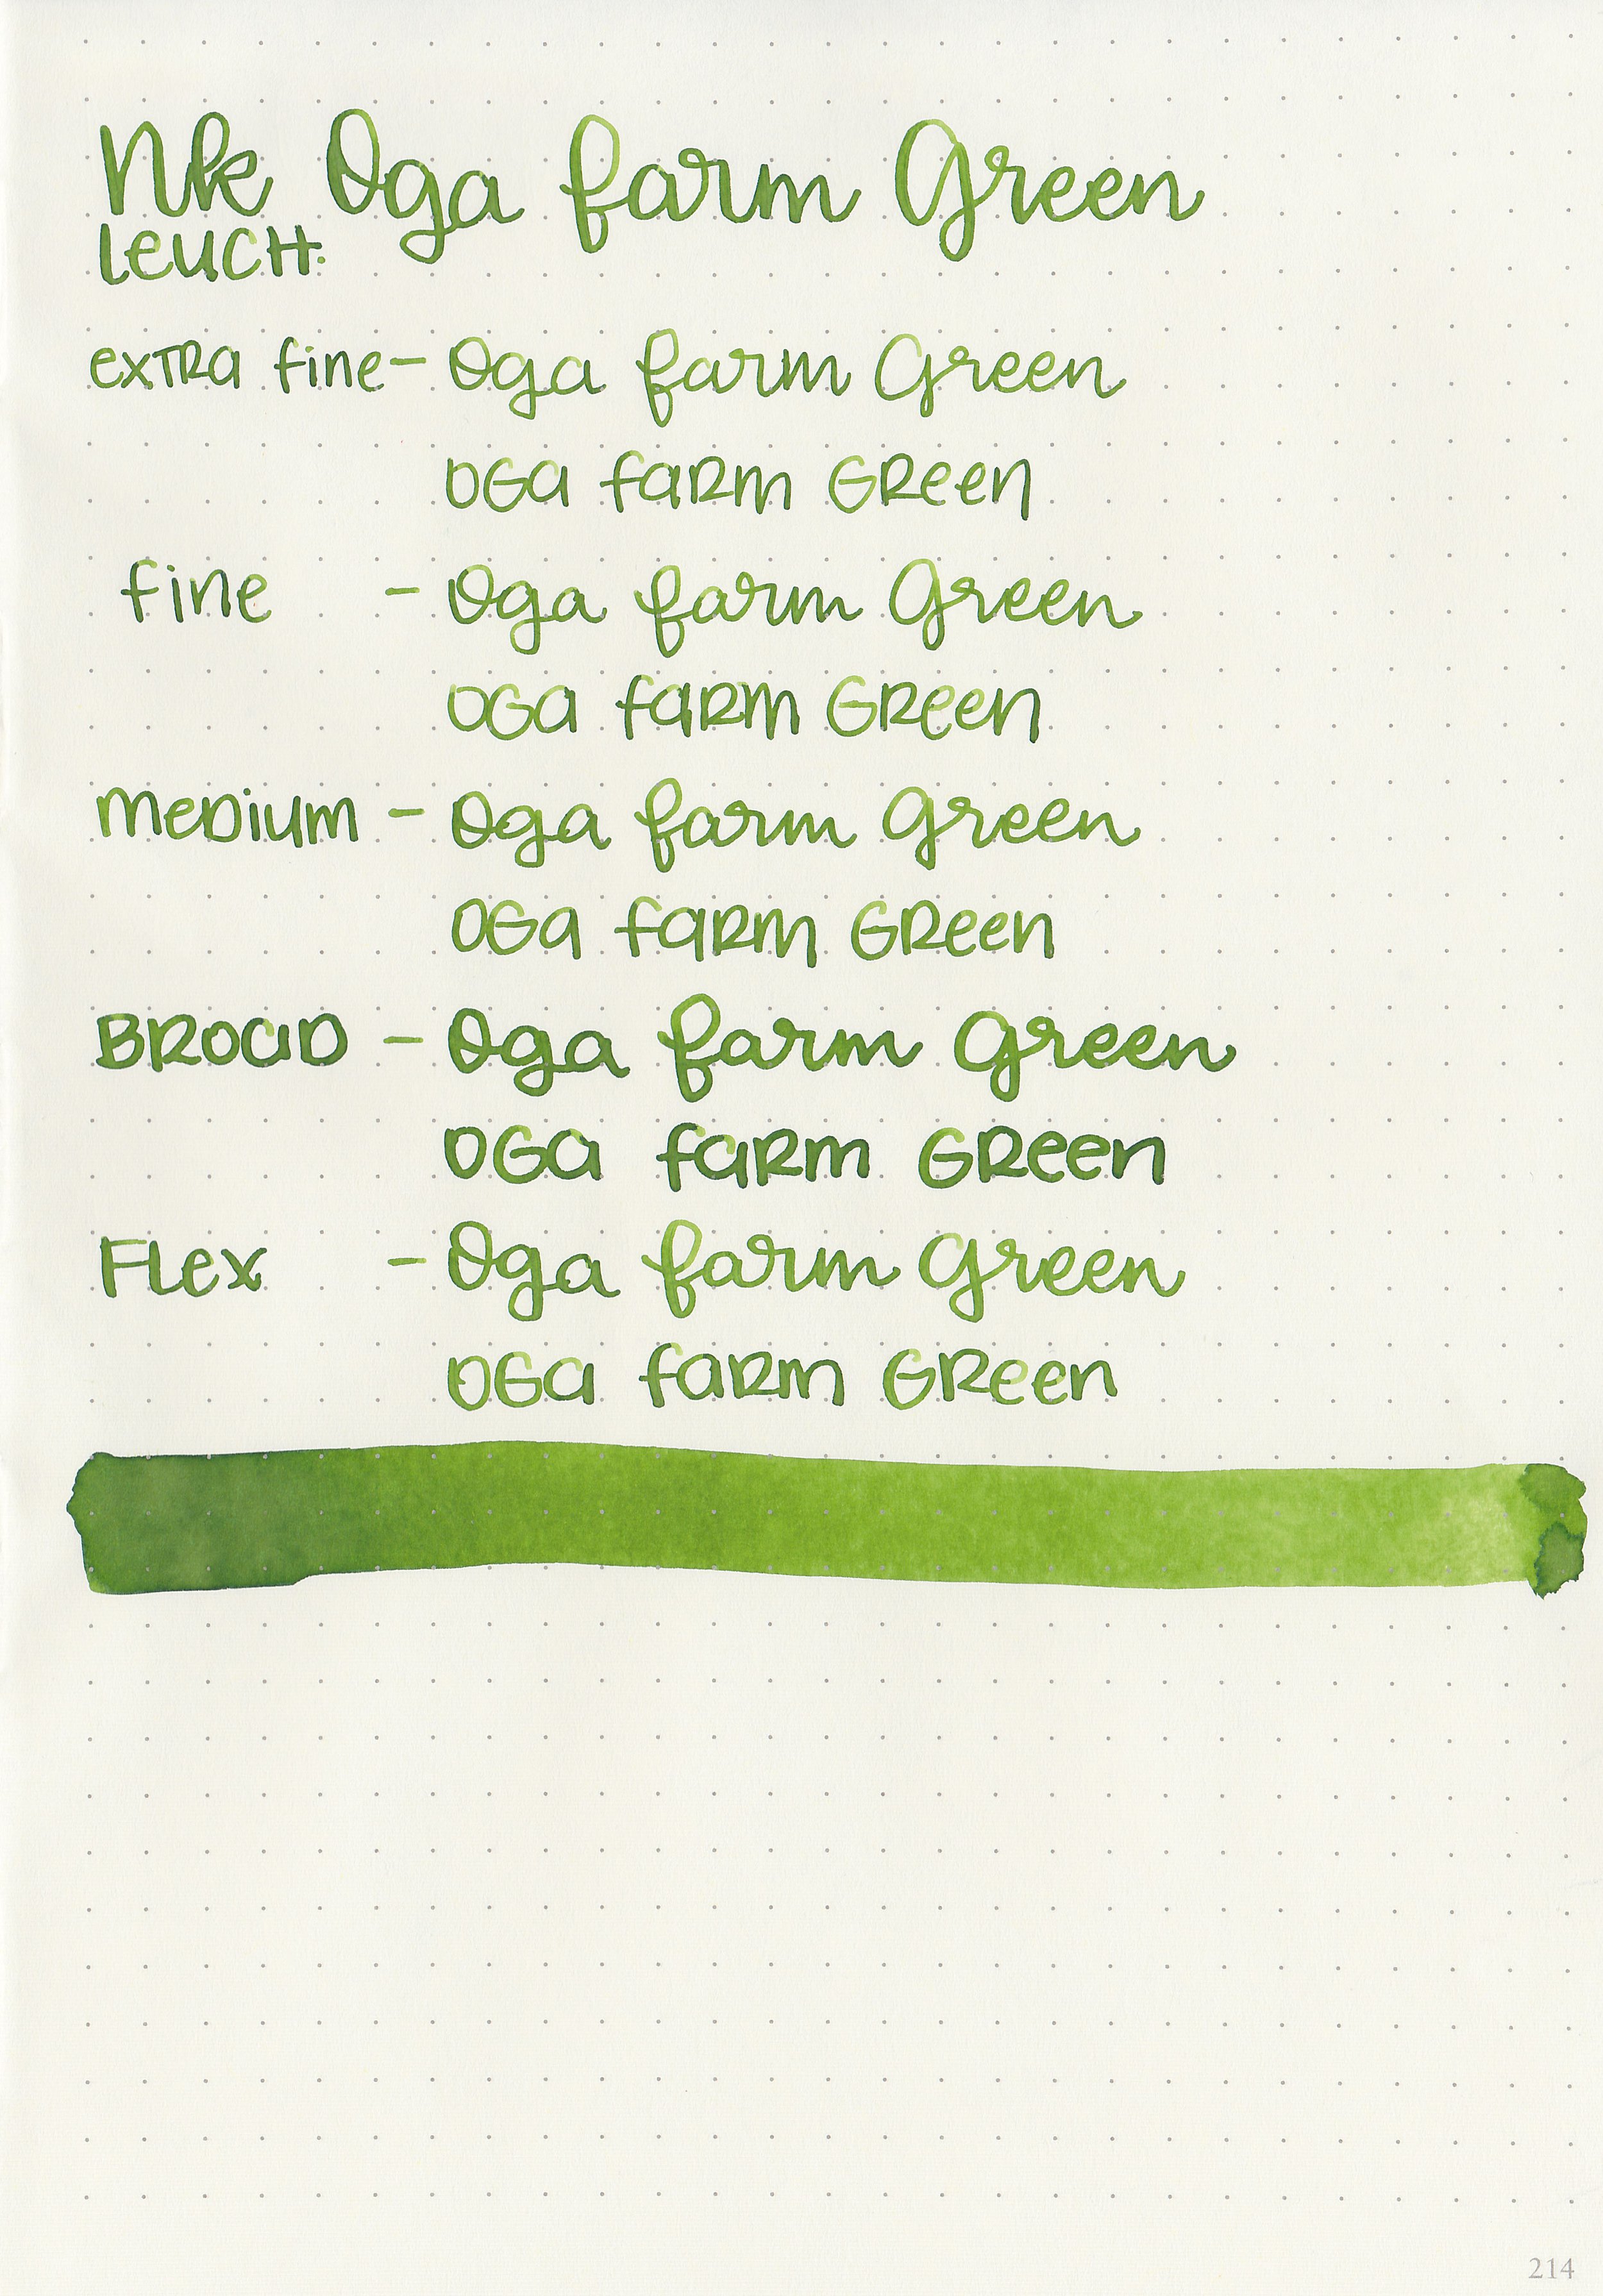 Nk Oga farm Green
Leuch.
extra fine - Oga farm Green
Oga farm Green
fine - Oga farm Green
Oga farm Green
Medium - Oga farm Green
Oga farm Green
Broad - Oga farm Green
Oga farm Green
Flex - Oga farm Green
Oga farm Green
214